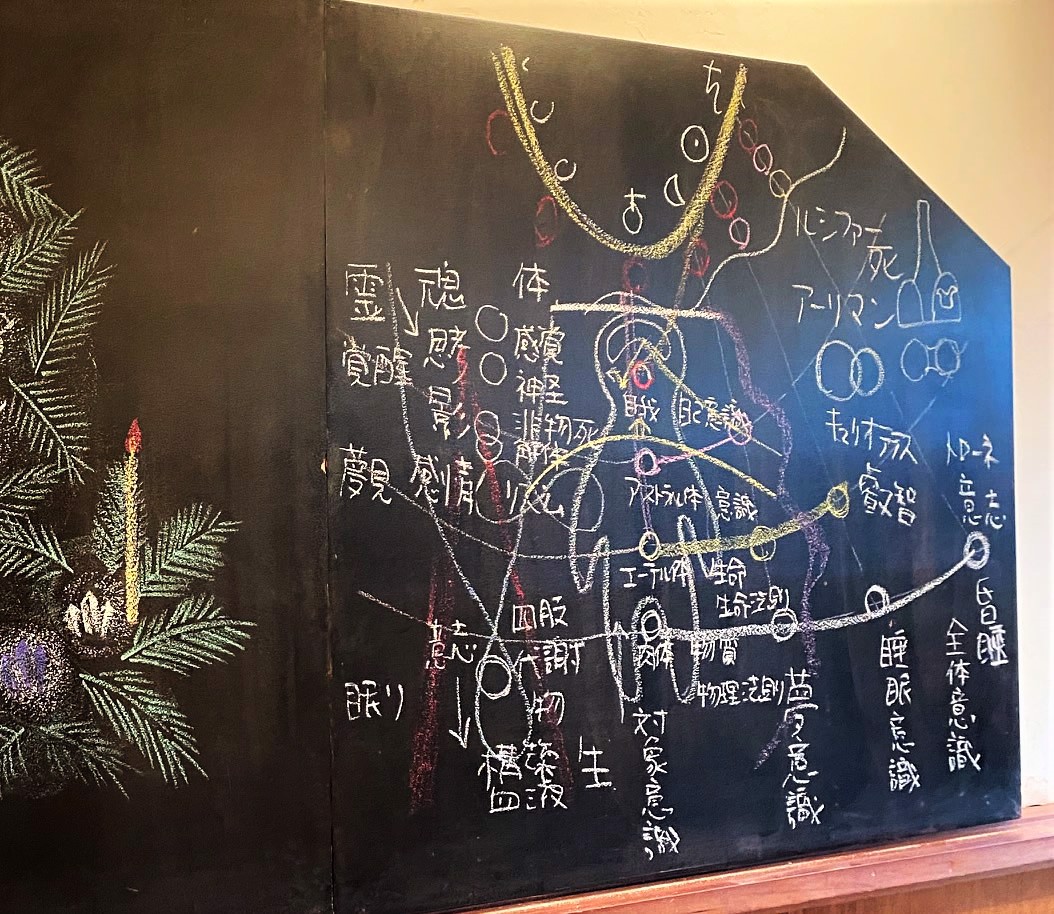 霊
魂
体
覚醒
思考
感覚
神経
影
死
夢見
感情
リズム
意志
四肢
代謝
眠り
物
構築
血液
生
自我
自己意識
アストラル体
意識
エーテル体
生命
生命法則
肉体
物質
物理法則
対象意識
夢意識
睡眠意識
昏睡
全体意識
ルシファー
死
アーリマン
キュリオテテス
叡智
トローネ
意志